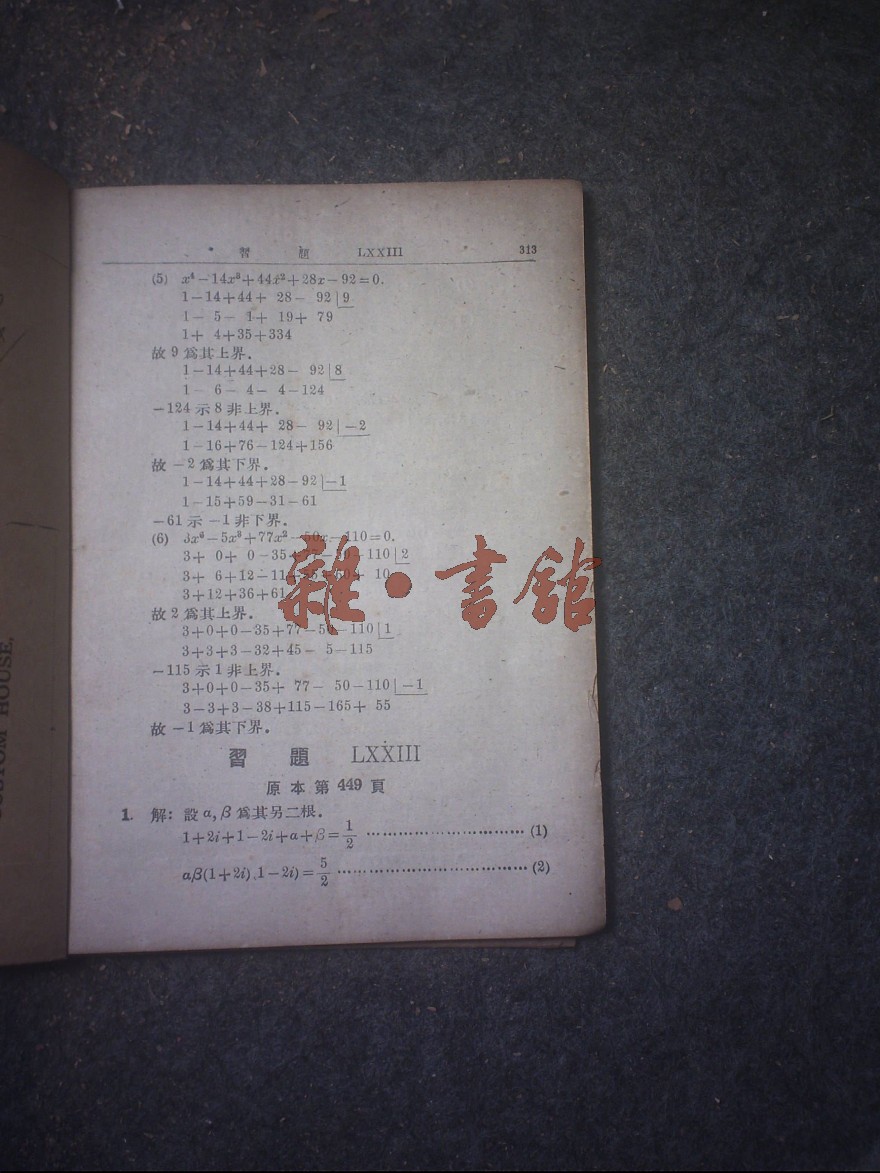 習 題 LXXIII 313
(5) x⁴−14x³+44x²+28x−92=0.
1−14+44+ 28− 92|9
1− 5− 1+ 19+ 79
1+ 4+35+334
故 9 爲其上界.
1−14+44+28− 92|8
1− 6− 4− 4−124
−124 示 8 非上界.
1−14+44+ 28− 92|−2
1−16+76−124+156
故 −2 爲其下界.
1−14+44+28−92|−1
1−15+59−31−61
−61 示 −1 非下界.
(6) 3x⁶−5x³+77x²−50x−110=0.
3+ 0+ 0−35+ −110|2
3+ 6+12−11+ 10
3+12+36+61
故 2 爲其上界.
3+0+0−35+77−50−110|1
3+3+3−32+45− 5−115
−115 示 1 非上界.
3+0+0−35+ 77− 50−110|−1
3−3+3−38+115−165+ 55
故 −1 爲其下界.
習 題 LXXIII
原本第 449 頁
1. 解: 設 α, β 爲其另二根.
1+2i+1−2i+α+β=1/2 ……………………… (1)
αβ(1+2i)(1−2i)=5/2 ……………………… (2)
雜·書館
CUSTOM HOUSE,